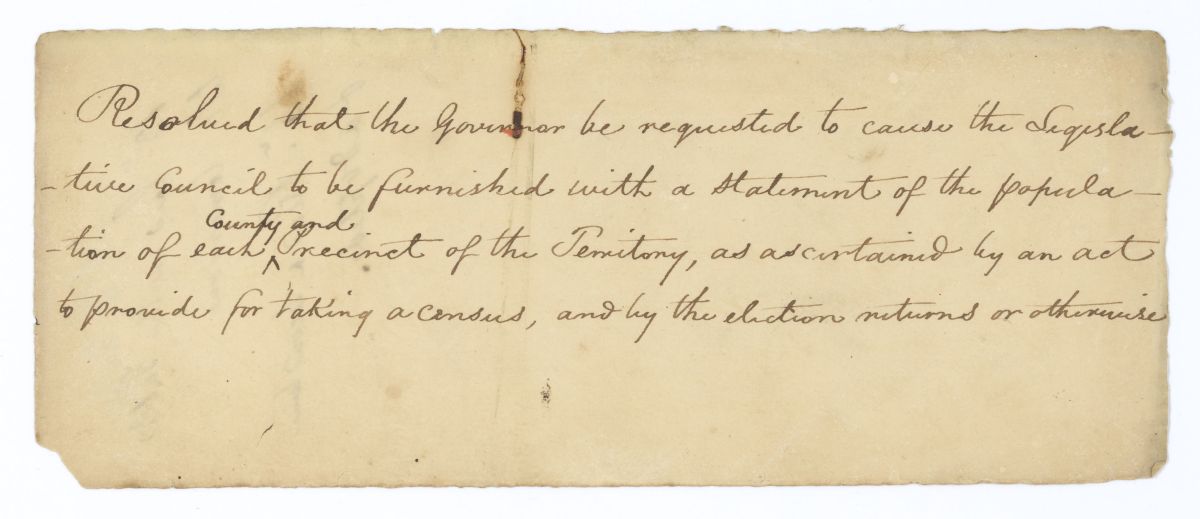 Resolved that the Governor be requested to cause the Legisla-
-tive Council to be furnished with a statement of the popula-
County and
-tion of each ^ Precinct of the Territory, as ascertained by an act
to provide for taking a census, and by the election returns or otherwise